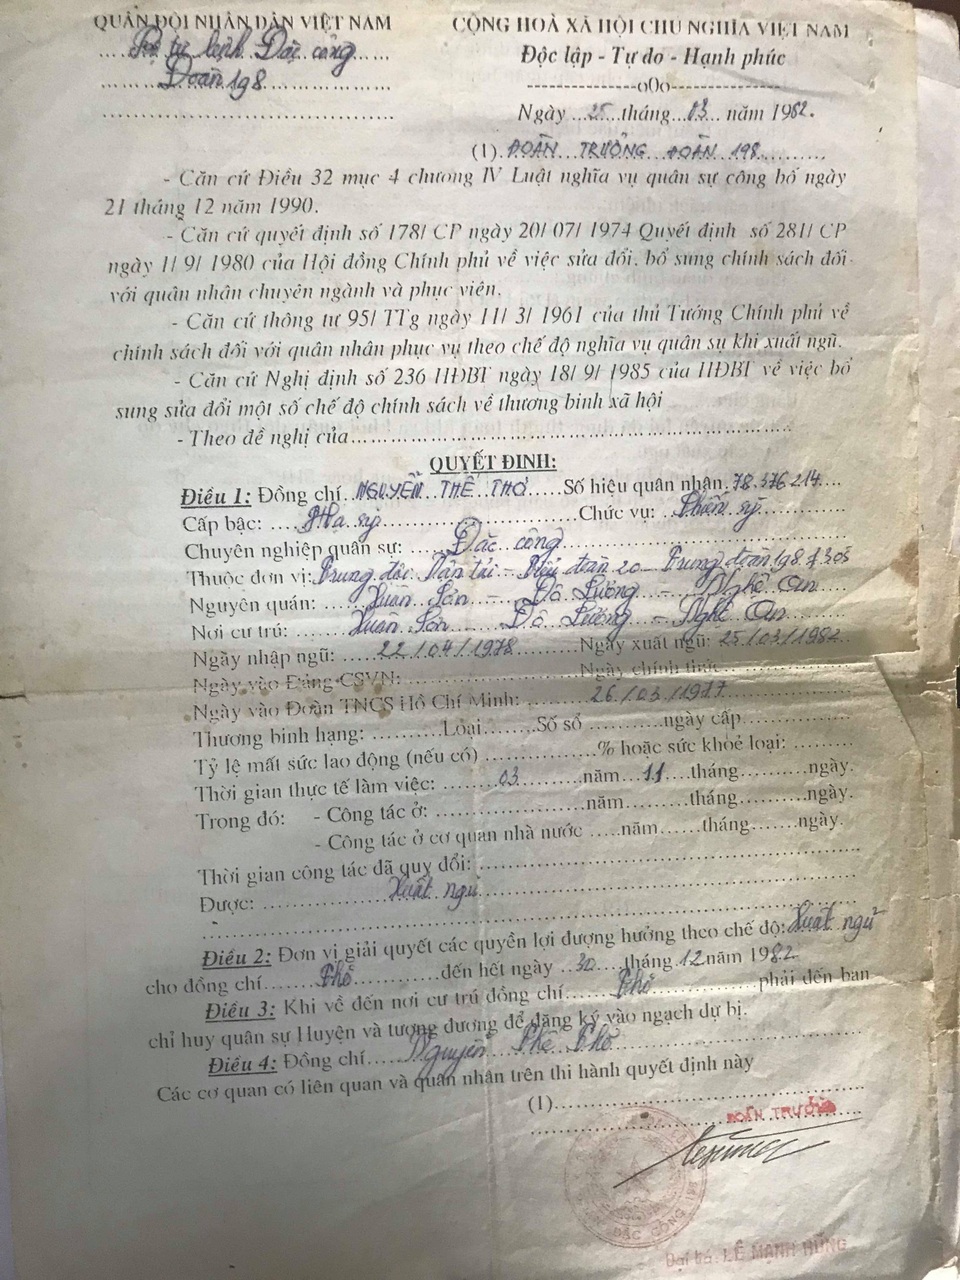 QUÂN ĐỘI NHÂN DÂN VIỆT NAM
CỘNG HOÀ XÃ HỘI CHỦ NGHĨA VIỆT NAM
Bộ tư lệnh Đặc công
Độc lập - Tự do - Hạnh phúc
Đoàn 198
---------------o0o---------------
Ngày ...25...tháng...03... năm 1982.
(1). ĐOÀN TRƯỞNG ĐOÀN 198
- Căn cứ Điều 32 mục 4 chương IV Luật nghĩa vụ quân sự công bố ngày
21 tháng 12 năm 1990.
- Căn cứ quyết định số 178/ CP ngày 20/ 07/ 1974 Quyết định số 281/ CP
ngày 1/ 9/ 1980 của Hội đồng Chính phủ về việc sửa đổi, bổ sung chính sách đối
với quân nhân chuyên ngành và phục viên.
- Căn cứ thông tư 95/ TTg ngày 11/ 3/ 1961 của thủ Tướng Chính phủ về
chính sách đối với quân nhân phục vụ theo chế độ nghĩa vụ quân sụ khi xuất ngũ.
- Căn cứ Nghị định số 236 HĐBT ngày 18/ 9/ 1985 của HĐBT về việc bổ
sung sửa đổi một số chế độ chính sách về thương binh xã hội
- Theo đề nghị của
QUYẾT ĐỊNH:
Điều 1: Đồng chí NGUYỄN THẾ THƠ Số hiệu quân nhân 78.376214
Cấp bậc: Hạ sỹ Chức vụ: Chiến sỹ
Chuyên nghiệp quân sự: Đặc công
Thuộc đơn vị: Trung đội Vận tải - Tiểu đoàn 20 - Trung đoàn 198 f 305
Nguyên quán: Xuân Sơn - Đô Lương - Nghệ An
Nơi cư trú: Xuân Sơn - Đô Lương - Nghệ An
Ngày nhập ngũ: 22/04/1978 Ngày xuất ngũ: 25/03/1982
Ngày vào Đảng CSVN: Ngày chính thức
Ngày vào Đoàn TNCS Hồ Chí Minh: 26/03/1977
Thương binh hạng: Loại Số sổ ngày cấp
Tỷ lệ mất sức lao động (nếu có) % hoặc sức khoẻ loại:
Thời gian thực tế làm việc: 03 năm 11 tháng ngày.
Trong đó: - Công tác ở: năm tháng ngày.
- Công tác ở cơ quan nhà nước năm tháng ngày.
Thời gian công tác đã quy đổi:
Được: Xuất ngũ
Điều 2: Đơn vị giải quyết các quyền lợi đượng hưởng theo chế độ: Xuất ngũ
cho đồng chí Thơ đến hết ngày 30 tháng 12 năm 1982
Điều 3: Khi về đến nơi cư trú đồng chí Thơ phải đến ban
chỉ huy quân sự Huyện và tương đương để đăng ký vào ngạch dự bị.
Điều 4: Đồng chí Nguyễn Thế Thơ
Các cơ quan có liên quan và quân nhân trên thi hành quyết định này
(1)
ĐOÀN TRƯỞNG
ĐẶC CÔNG 198
Đại tá: LÊ MẠNH HÙNG